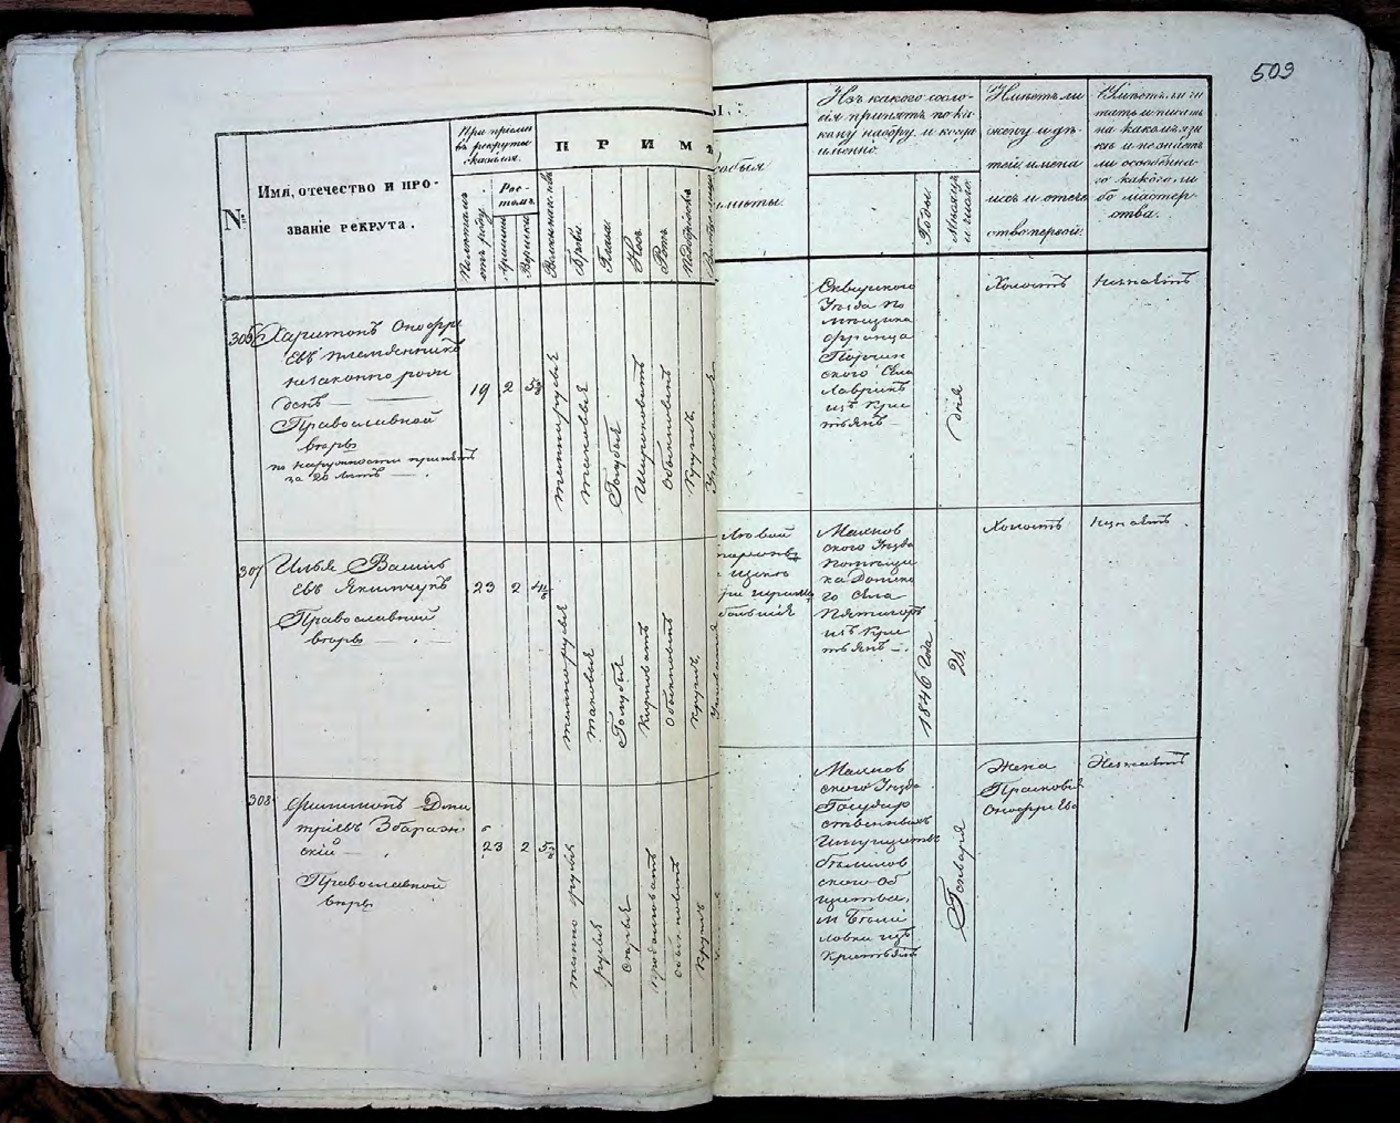 509
№
Имя, отечество и про-
званіе рекрута.
При пріемѣ
въ рекруты
оказался.
Сколькимъ
отъ роду
Рос-
томъ.
Аршины
Вершки
ПРИМѢ
Брови
Глаза
Носъ
Ротъ
Подбородокъ
ы.:
собыя
имѣты.
Изъ какого сосло-
вія принятъ по ка-
кому набору и когда
именно.
Годы
Мѣсяцъ
и число
Имѣетъ ли
жену и дѣ-
тей имена
ихъ и отече
ство первой.
Умѣетъ ли чи
тать и писать
на какомъ язы
кѣ и не знаетъ
ли особенна-
го какого ли
бо мастер-
ства.
306
Харитонъ Онофрі
евъ племянникъ
незаконно рож
денъ
Православной
вѣры
по наружности принятъ
за 20 лѣтъ
19
2
темнорусыя
таковыя
Голубыя
Широковатъ
обыкновенъ
Круглъ
Сквирского
Уѣзда по
мѣщика
Франца
ского Села
Лаврикъ
изъ Кре
тьянъ
дня
Холостъ
Незнаетъ
307
Илья Василь
евъ Якимчукъ
Православной
вѣры
23
2
темнорусыя
таковыя
Голубыя
Обыкновенъ
Круглъ
Махнов
ского Уѣзда
помѣщи
ка
го Села
Пятигоръ
изъ Кре
тьянъ
1846 года
21
Холостъ
Незнаетъ
308
Филимонъ Дми
тріевъ Збараж
скій
Православной
вѣры
23
2
темно русыя
русыя
сѣрыя
продолговатъ
обыкновенъ
Круглъ
Махнов
ского Уѣзда
Государ
ственныхъ
Имуществъ
Бѣлилов
ского Об
щества,
м Бѣли
ловки изъ
Крестьянъ
Генваря
Жена
Прасковія
Онофріева
Незнаетъ